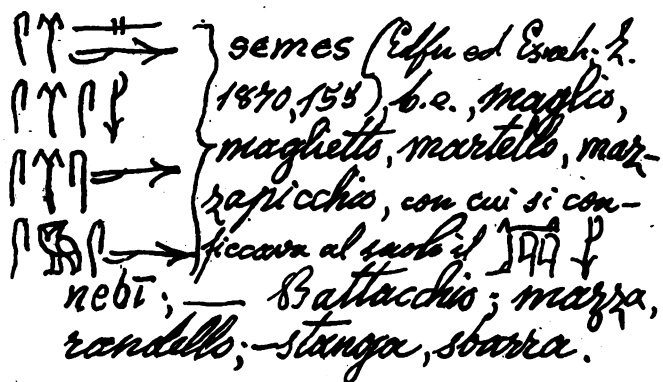 semes (Edfu ed Esneh; Z.
1870, 155), b.e., maglio,
maglietto, martello, maz-
zapicchio, con cui si con-
ficcava al suolo il
nebī; — Battacchio; mazza,
randello; — stanga, sbarra.